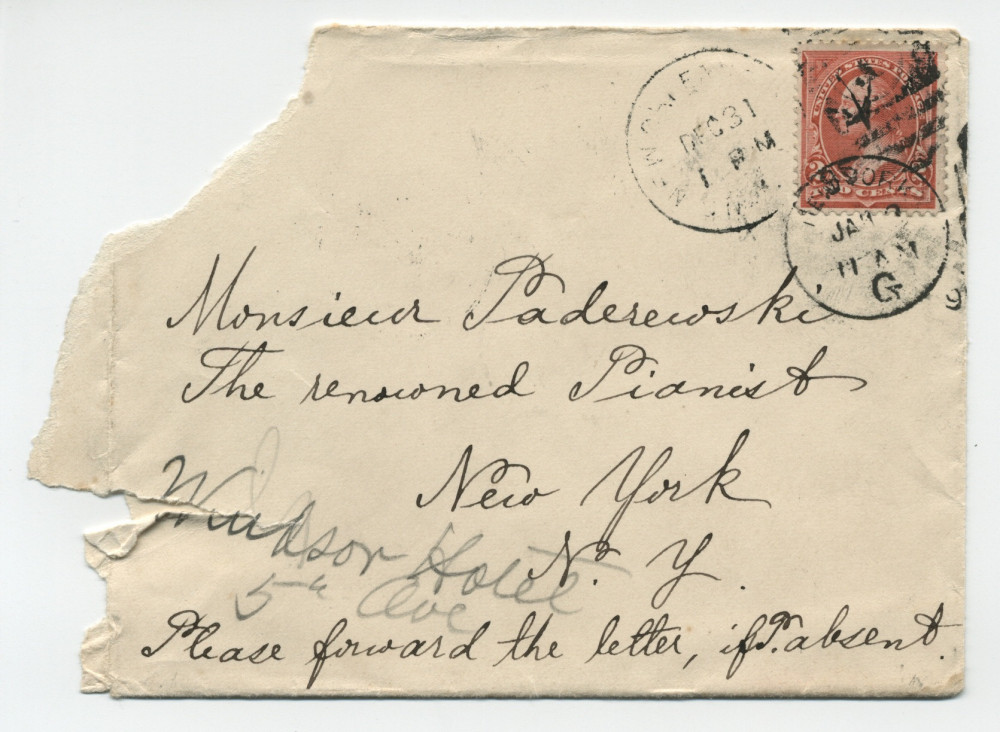 DEC 31
1 PM
UNITED STATES POSTAGE
CENTS
JAN 2
11 AM
G
Monsieur Paderewski
The renowned Pianist
New York
N. Y.
Windsor Hotel
5th Ave
Please forward the letter, if P. absent.